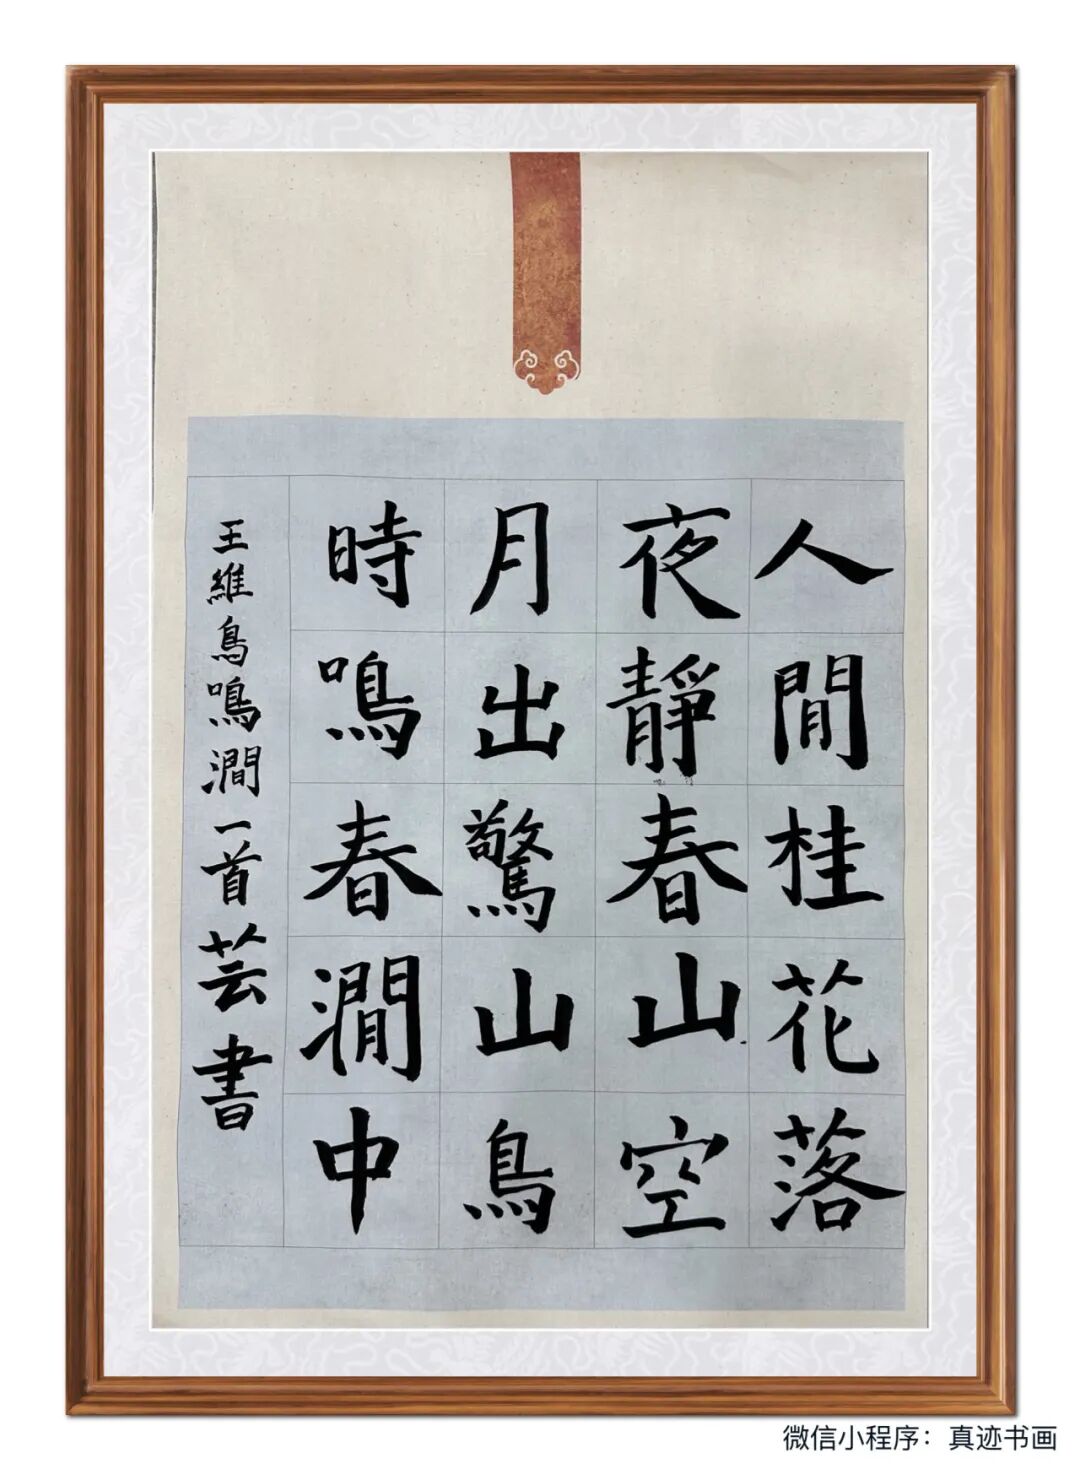 人閒桂花落
夜靜春山空
月出驚山鳥
時鳴春澗中
王維鳥鳴澗一首芸書
微信小程序：真迹书画